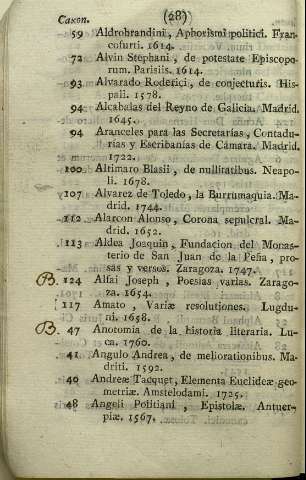 Caxon. (28)
59 Aldrobrandini, Aphorismi politici. Fran-
cofurti. 1614.
72 Alvin Stephani, de potestate Episcopo-
rum. Parisiis. 1614.
93 Alvarado Roderici, de conjecturis. His-
pali. 1578.
94 Alcabalas del Reyno de Galicia. Madrid.
1645.
94 Aranceles para las Secretarías, Contadu-
rías y Escribanías de Cámara. Madrid.
1722.
100 Altimaro Blasii, de nullitatibus. Neapo-
li. 1678.
107 Alvarez de Toledo, la Burrumaquia. Ma-
drid. 1744.
112 Alarcon Alonso, Corona sepulcral. Ma-
drid. 1652.
113 Aldea Joaquin, Fundacion del Monas-
terio de San Juan de la Peña, pro-
sas y versos. Zaragoza. 1747.
B. 124 Alfai Joseph, Poesias varias. Zarago-
za. 1654.
117 Amato, Variæ resolutiones. Lugdu-
ni. 1658.
B. 47 Anotomia de la historia literaria. Lu-
ca. 1760.
41 Angulo Andrea, de meliorationibus. Ma-
driti. 1592.
40 Andreæ Tacquet, Elementa Euclideæ geo-
metriæ. Amstelodami. 1725.
48 Angeli Politiani, Epistolæ. Antuer-
piæ. 1567.